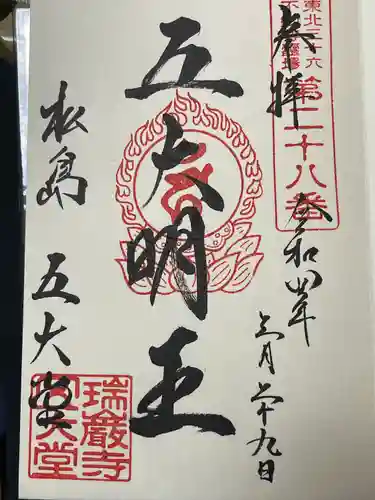 東北三十六
第二十八番
奉拝
令和四年
三月二十九日
五大明王
松島 五大堂
瑞巖寺
五大堂